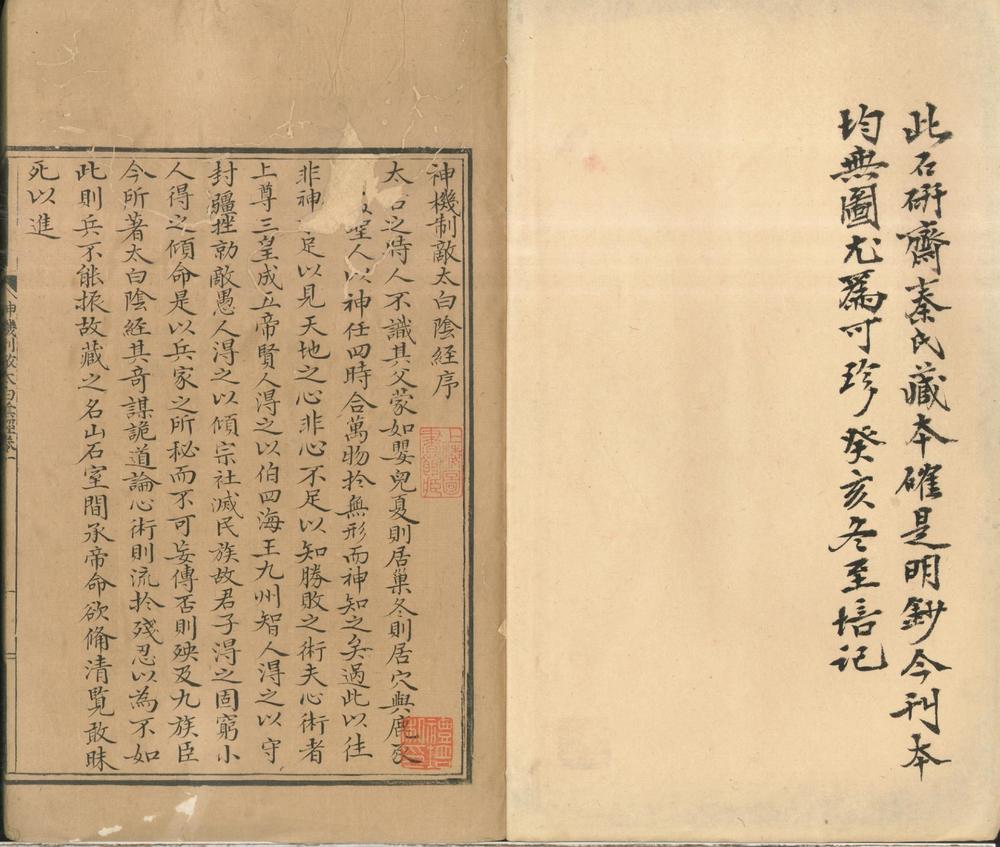 此石研齋秦氏藏本確是明鈔今刊本
均無圖尤爲可珍癸亥冬至培記
神機制敵太白陰經序
太古之時人不識其父蒙如嬰兒夏則居巢冬則居穴與鹿豕
聖人以神任四時合萬物扵無形而神知之矣過此以往
非神不足以見天地之心非心不足以知勝敗之術夫心術者
上尊三皇成五帝賢人得之以伯四海王九州智人得之以守
封疆挫勍敵愚人得之以傾宗社滅民族故君子得之固窮小
人得之傾命是以兵家之所秘而不可妄傳否則殃及九族臣
今所著太白陰經其奇謀詭道論心術則流扵殘忍以為不如
此則兵不能振故藏之名山石室間承帝命欲俻清覧敢昧
死以進
神機制敵太白陰經卷一
上海圖
書館藏